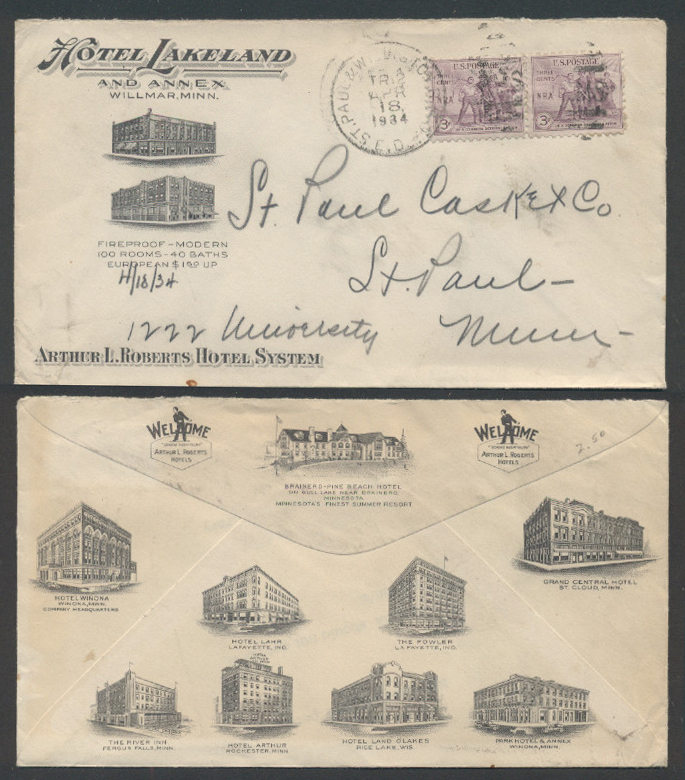 HOTEL LAKELAND
AND ANNEX
WILLMAR, MINN.
FIREPROOF - MODERN
100 ROOMS - 40 BATHS
EUROPEAN $1.50 UP
4/18/34
ST. PAUL & W.
TR 3
APR
18
1934
R.P.O.
U.S. POSTAGE
THREE CENTS
N R A
3¢
U.S. POSTAGE
THREE CENTS
N R A
3¢
St. Paul Casket Co
St. Paul -
1222 University Minn -
ARTHUR L. ROBERTS HOTEL SYSTEM
WELCOME
ARTHUR L. ROBERTS
HOTELS
WELCOME
ARTHUR L. ROBERTS
HOTELS
2.50
BRAINERD-PINE BEACH HOTEL
ON GULL LAKE NEAR BRAINERD,
MINNESOTA
MINNESOTA'S FINEST SUMMER RESORT
HOTEL WINONA
WINONA, MINN.
COMPANY HEADQUARTERS
GRAND CENTRAL HOTEL
ST. CLOUD, MINN.
HOTEL LAHR
LAFAYETTE, IND.
THE FOWLER
LAFAYETTE, IND.
THE RIVER INN
FERGUS FALLS, MINN.
HOTEL ARTHUR
ROCHESTER, MINN.
HOTEL LAND O'LAKES
RICE LAKE, WIS.
PARK HOTEL & ANNEX
WINONA, MINN.